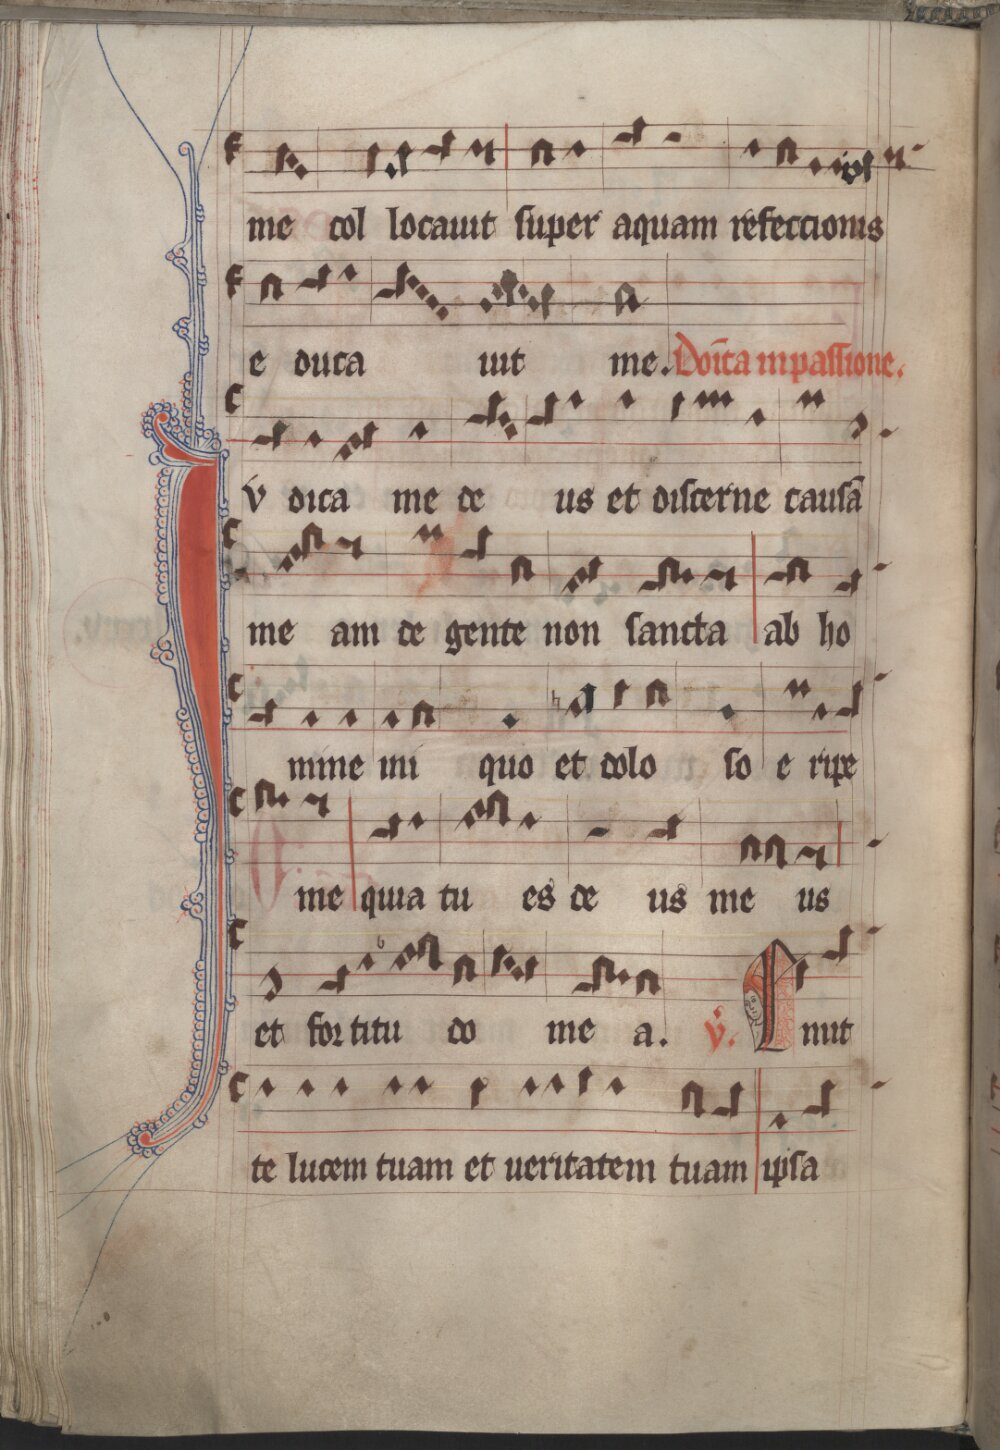 me col locauit super aquam refeccionis
e duca uit me. Doīca in passione.
Iv dica me de us et discerne causā
me am de gente non sancta ab ho
mine ini quo et dolo so e ripe
me quia tu es de us me us
et fortitu do me a. v̇. Emit
te lucem tuam et ueritatem tuam ipsa